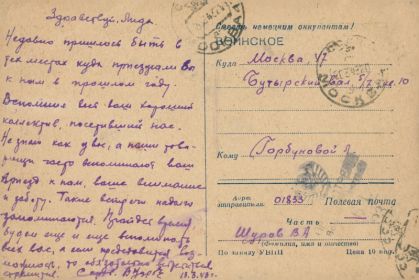 Здравствуй, Лида.
Недавно пришлось быть в
тех местах куда приезжали Вы
к нам в прошлом году.
Вспомнил весь ваш хороший
коллектив, посетивший нас.
Не знаю как у вас, а наши това-
рищи часто вспоминают ваш
приезд к нам, ваше внимание
и заботу. Такие встречи надолго
запоминаются. Пройдет время,
будем еще и еще вспоминать
всех вас, а если представится воз-
можность, то обязательно
Смерть немецким оккупантам!
ВОИНСКОЕ
Куда Москва, 17
Бутырский
Кому Горбуновой Л.
Адрес
отправителя: 01835 Полевая почта
Часть
Щуров В А
(Фамилия, имя и отчество)
Цена 10 коп.
МОСКВА